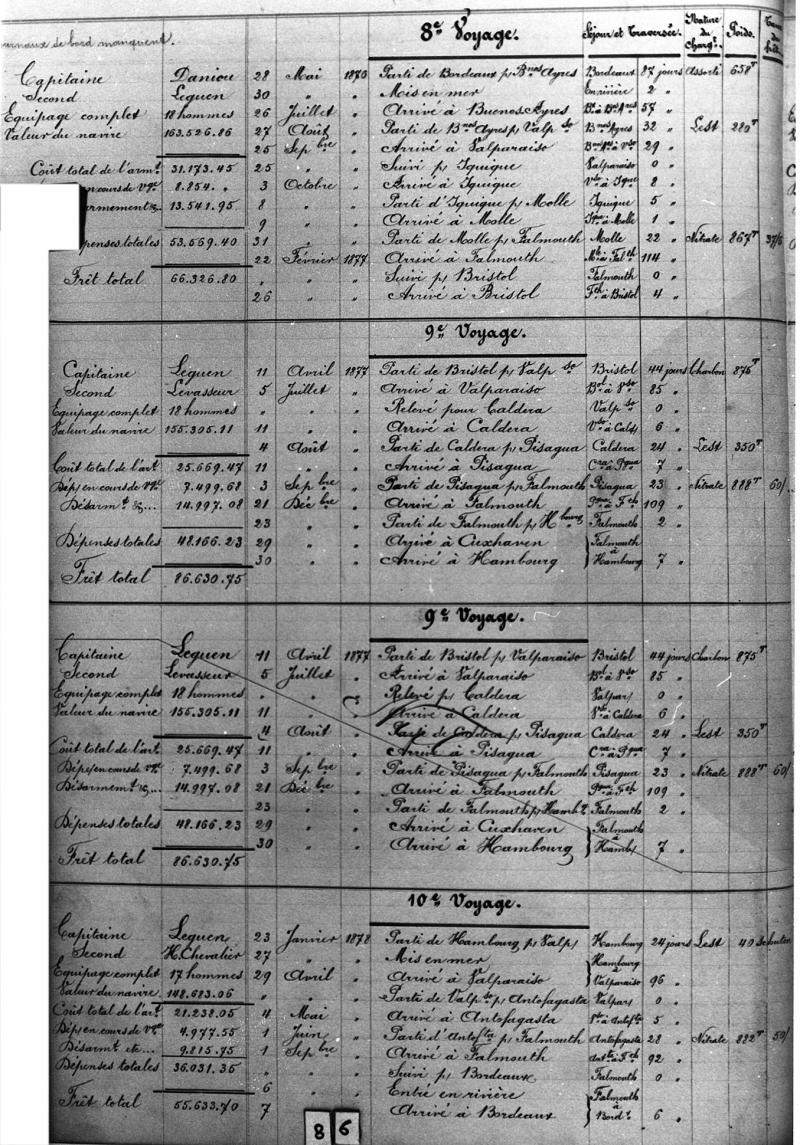 8e Voyage. Séjour et Traversée. Nature du Chargt. Poids.
ournaux de bord manquent.
Capitaine Daniou 28 Mai 1876 Parti de Bordeaux p/ Bnos Ayres Bordeaux 87 jours Assorti 658T
Second Leguen 30 " " Mis en mer En rivière 2 "
Equipage complet 18 hommes 26 Juillet " Arrivé à Buenos Ayres Bx à Bs Ayres 57 "
Valeur du navire 163.526.86 27 Août " Parti de Bnos Ayres p/ Valpso Bnos Ayres 32 " Lest 280T
25 Sepbre " Arrivé à Valparaiso 29 "
Coût total de l'armt 31.173.45 25 " " Suivi p/ Iquique Valparaiso 0 "
en cours de Vge 8.854. " 3 Octobre " Arrivé à Iquique Vso à Ique 8 "
armement &.. 13.541.95 8 " " Parti d'Iquique p/ Molle Iquique 5 "
9 " " Arrivé à Molle Ique à Molle 1 "
épenses totales 53.569.40 31 " " Parti de Molle p/ Falmouth Molle 22 " Nitrate 867T 37/6
22 Février 1877 Arrivé à Falmouth Mle à Falth 114 "
Frêt total 66.326.80 " " " Suivi p/ Bristol Falmouth 0 "
26 " " Arrivé à Bristol Fth à Bristol 4 "
9e Voyage.
Capitaine Leguen 11 Avril 1877 Parti de Bristol p/ Valpso Bristol 44 jours Charbon 875T
Second Levasseur 5 Juillet " Arrivé à Valparaiso Btol à Vso 85 "
Equipage complet 18 hommes " " " Relevé pour Caldera Valpso 0 "
Valeur du navire 155.305.11 11 " " Arrivé à Caldera Vso à Cald/ 6 "
4 Août " Parti de Caldera p/ Pisagua Caldera 24 " Lest 350T
Coût total de l'art 25.669.47 11 " " Arrivé à Pisagua Cra à Pgua 7 "
Dép/ en cours de Vge 7.499.68 3 Sepbre " Parti de Pisagua p/ Falmouth Pisagua 23 " Nitrate 888T 60/
Désarmt &... 14.997.08 21 Décbre " Arrivé à Falmouth Pgua à Fth 109 "
23 " " Parti de Falmouth p/ Hbourg Falmouth 2 "
Dépenses totales 48.166.23 29 " " Arrivé à Cuxhaven Falmouth
30 " " Arrivé à Hambourg à Hambourg 7 "
Frêt total 86.630.75
9e Voyage.
Capitaine Leguen 11 Avril 1877 Parti de Bristol p/ Valparaiso Bristol 44 jours Charbon 875T
Second Levasseur 5 Juillet " Arrivé à Valparaiso Btol à Vso 85 "
Equipage complet 18 hommes " " " Relevé p/ Caldera Valpar/ 0 "
Valeur du navire 155.305.11 11 " " Arrivé à Caldera Vso à Caldera 6 "
4 Août " Parti de Caldera p/ Pisagua Caldera 24 " Lest 350T
Coût total de l'art 25.669.47 11 " " Arrivé à Pisagua Cra à Pgua 7 "
Dép/ en cours de Vge 7.499.68 3 Sepbre " Parti de Pisagua p/ Falmouth Pisagua 23 " Nitrate 888T 60/
Désarmemt &... 14.997.08 21 Décbre " Arrivé à Falmouth Pgua à Fth 109 "
23 " " Parti de Falmouth p/ Hambg Falmouth 2 "
Dépenses totales 48.166.23 29 " " Arrivé à Cuxhaven Falmouth
30 " " Arrivé à Hambourg à Hamb/ 7 "
Frêt total 86.630.75
10e Voyage.
Capitaine Leguen 23 Janvier 1878 Parti de Hambourg p/ Valp/ Hambourg 24 jours Lest 40
Second H. Chevalier 27 " " Mis en mer Hambourg
Equipage complet 17 hommes 29 Avril " Arrivé à Valparaiso à Valparaiso 96 "
Valeur du navire 148.683.06 " " " Parti de Valpso p/ Antofagasta Valpar/ 0 "
Coût total de l'art 21.238.05 4 Mai " Arrivé à Antofagasta Vso à Antofta 5 "
Dép/ en cours de Vge 4.977.55 1 Juin " Parti d'Antofta p/ Falmouth Antofagasta 28 " Nitrate 882T 50/
Désarmt etc... 9.815.75 1 Sepbre " Arrivé à Falmouth Antta à Fth 92 "
Dépenses totales 36.031.35 " " " Suivi p/ Bordeaux Falmouth 0 "
6 " " Entré en rivière Falmouth
Frêt total 55.633.70 7 " " Arrivé à Bordeaux à Bordx 6 "
8 6